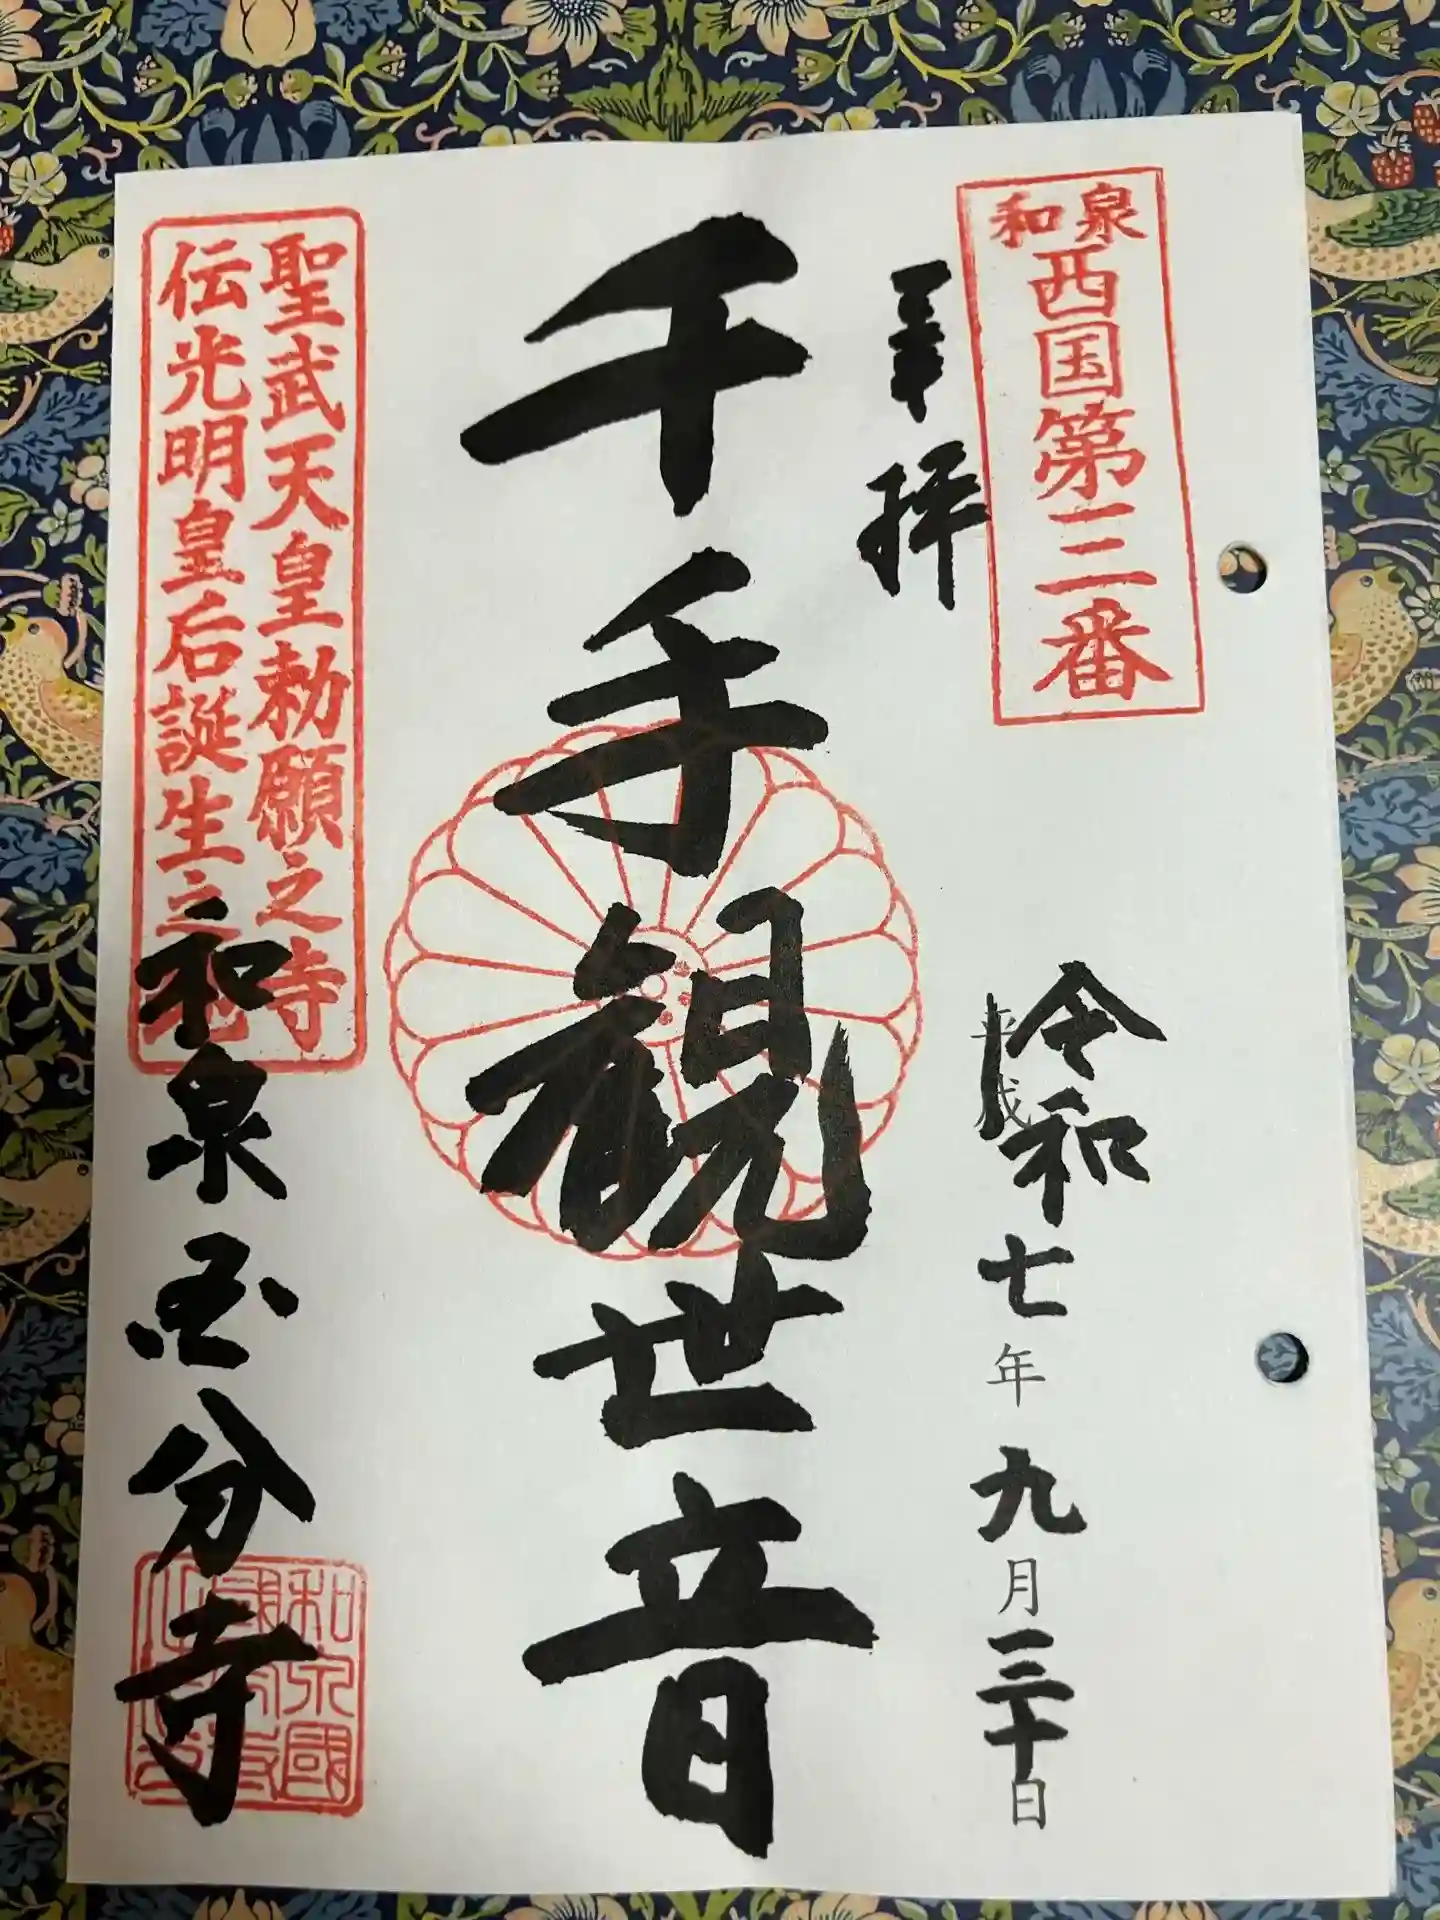 和泉
西国第三番
奉拝
令和七年九月三十日
平成
千手観世音
聖武天皇勅願之寺
伝光明皇后誕生之地
和泉国分寺